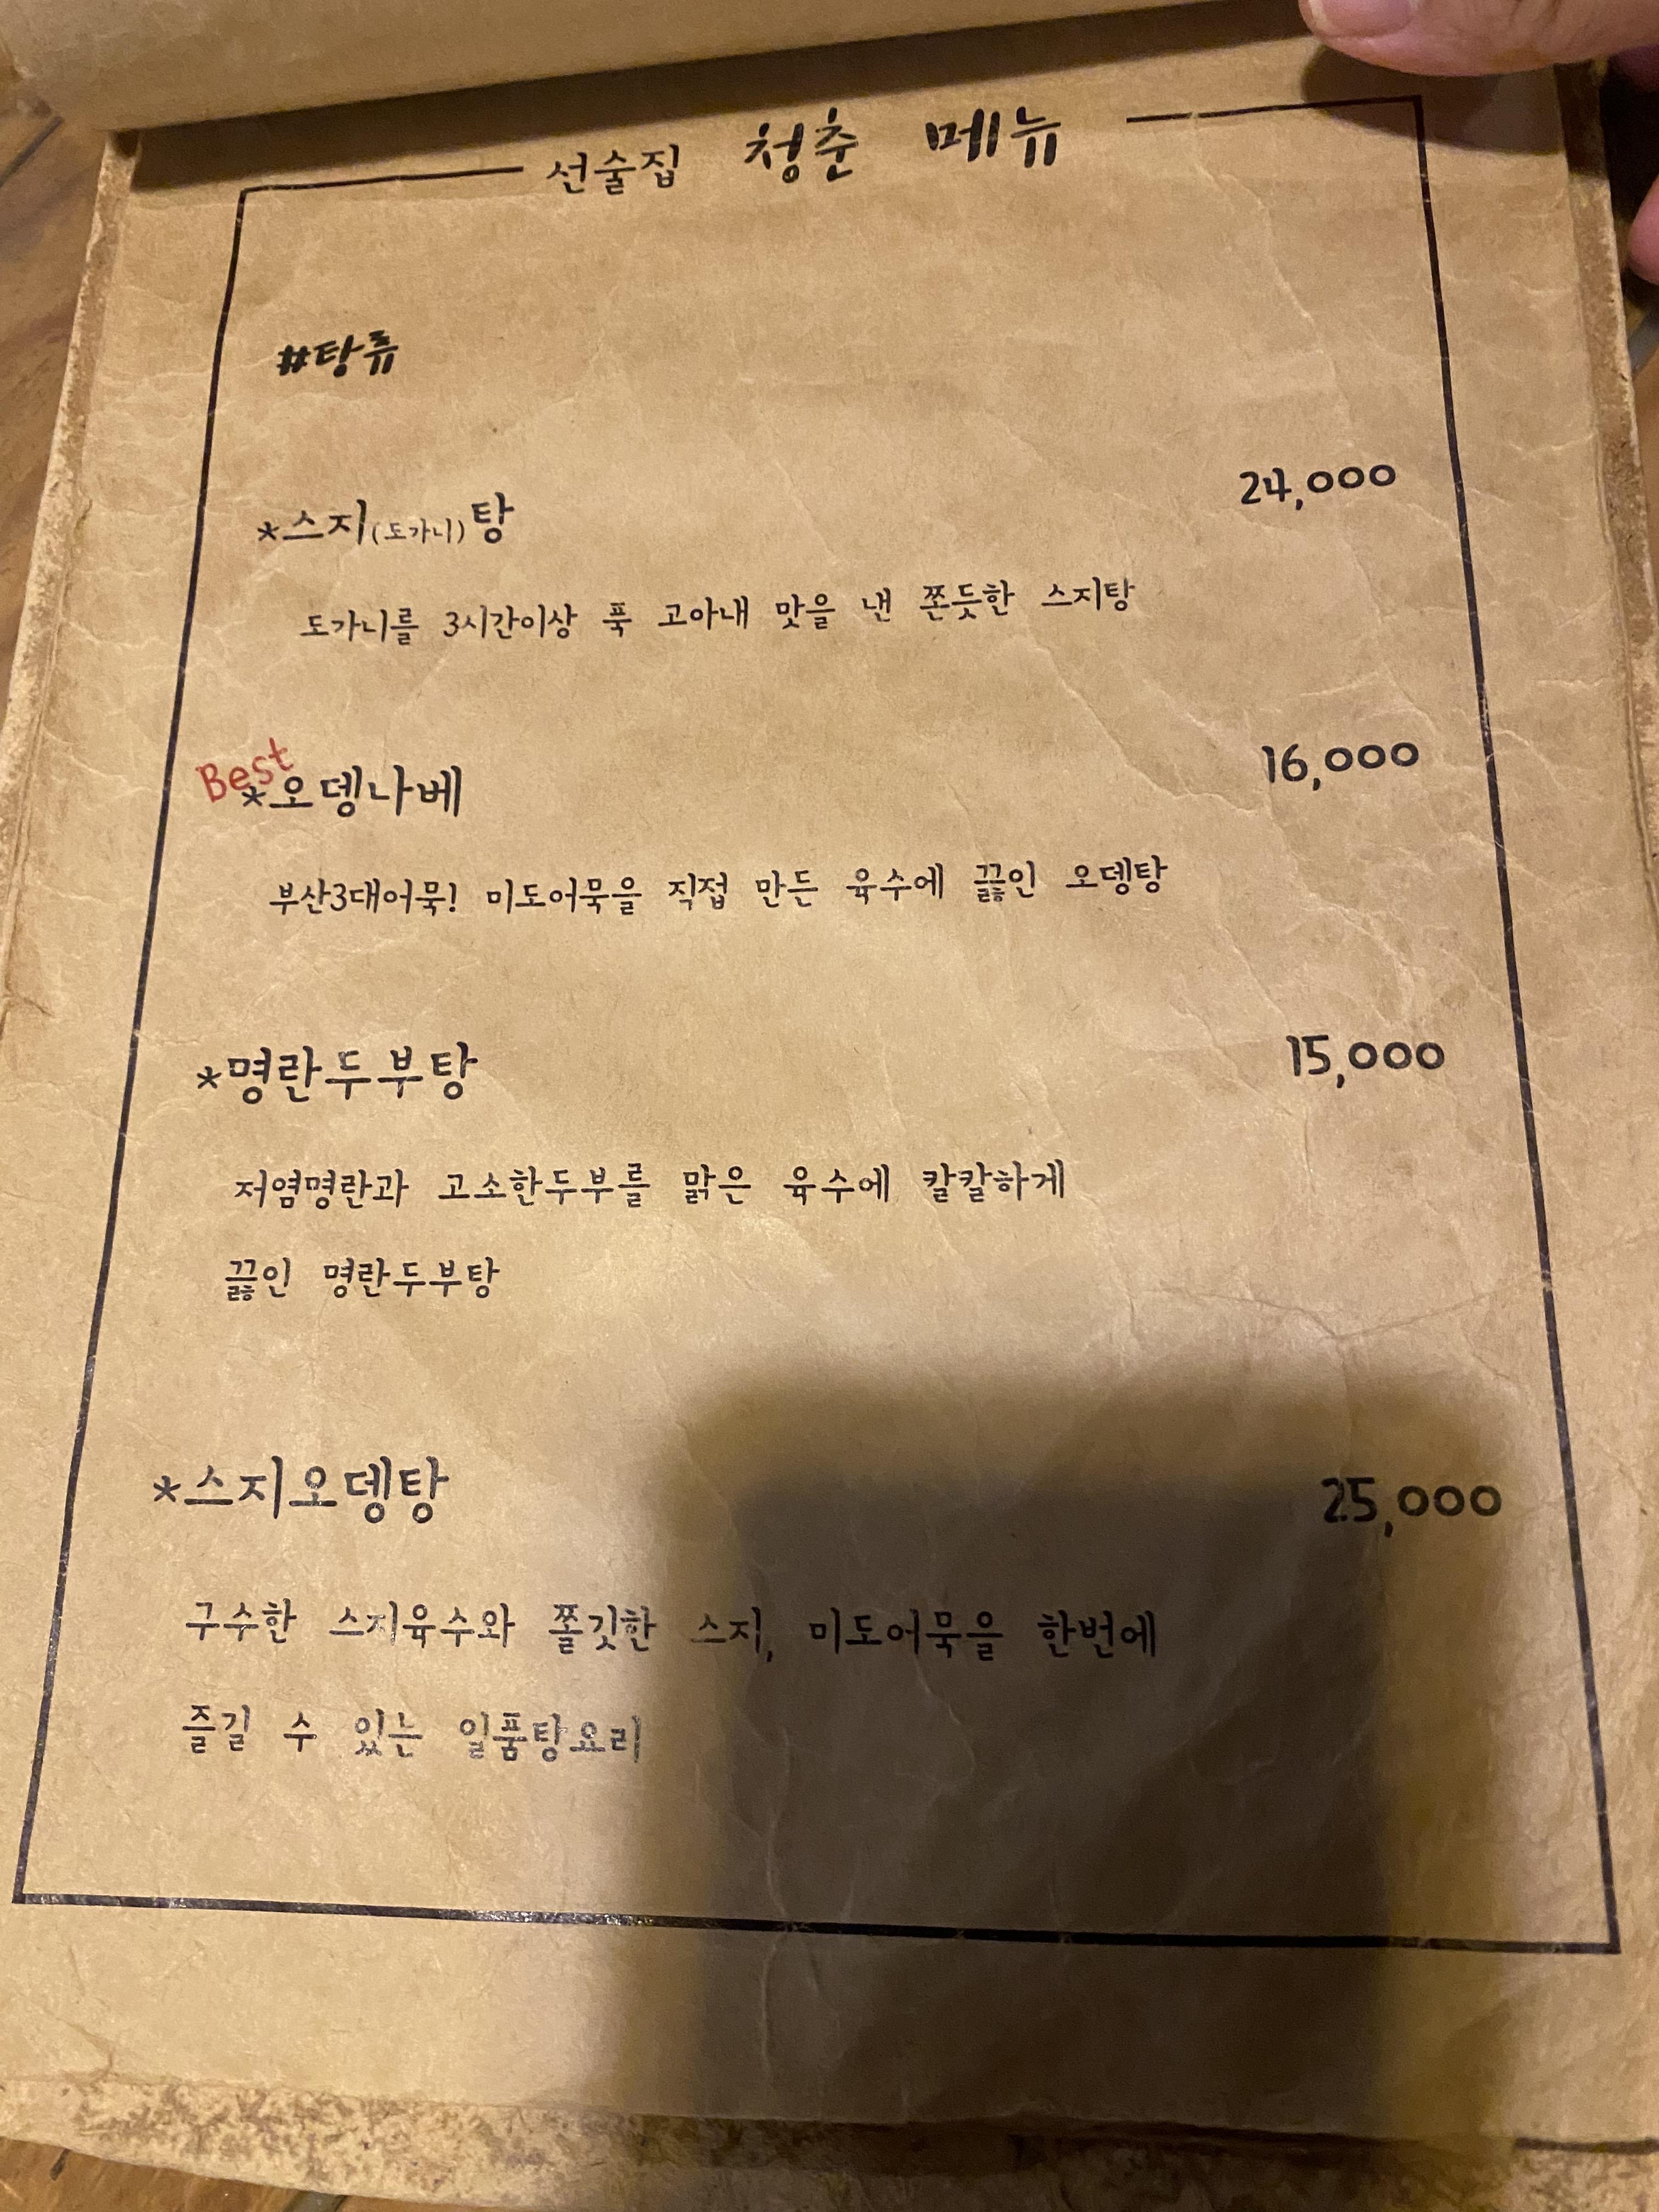 선술집 청춘 메뉴
#탕류
*스지(도가니)탕 24,000
도가니를 3시간이상 푹 고아내 맛을 낸 쫀듯한 스지탕
Best
*오뎅나베 16,000
부산3대어묵! 미도어묵을 직접 만든 육수에 끓인 오뎅탕
*명란두부탕 15,000
저염명란과 고소한두부를 맑은 육수에 칼칼하게
끓인 명란두부탕
*스지오뎅탕 25,000
구수한 스지육수와 쫄깃한 스지, 미도어묵을 한번에
즐길 수 있는 일품탕요리